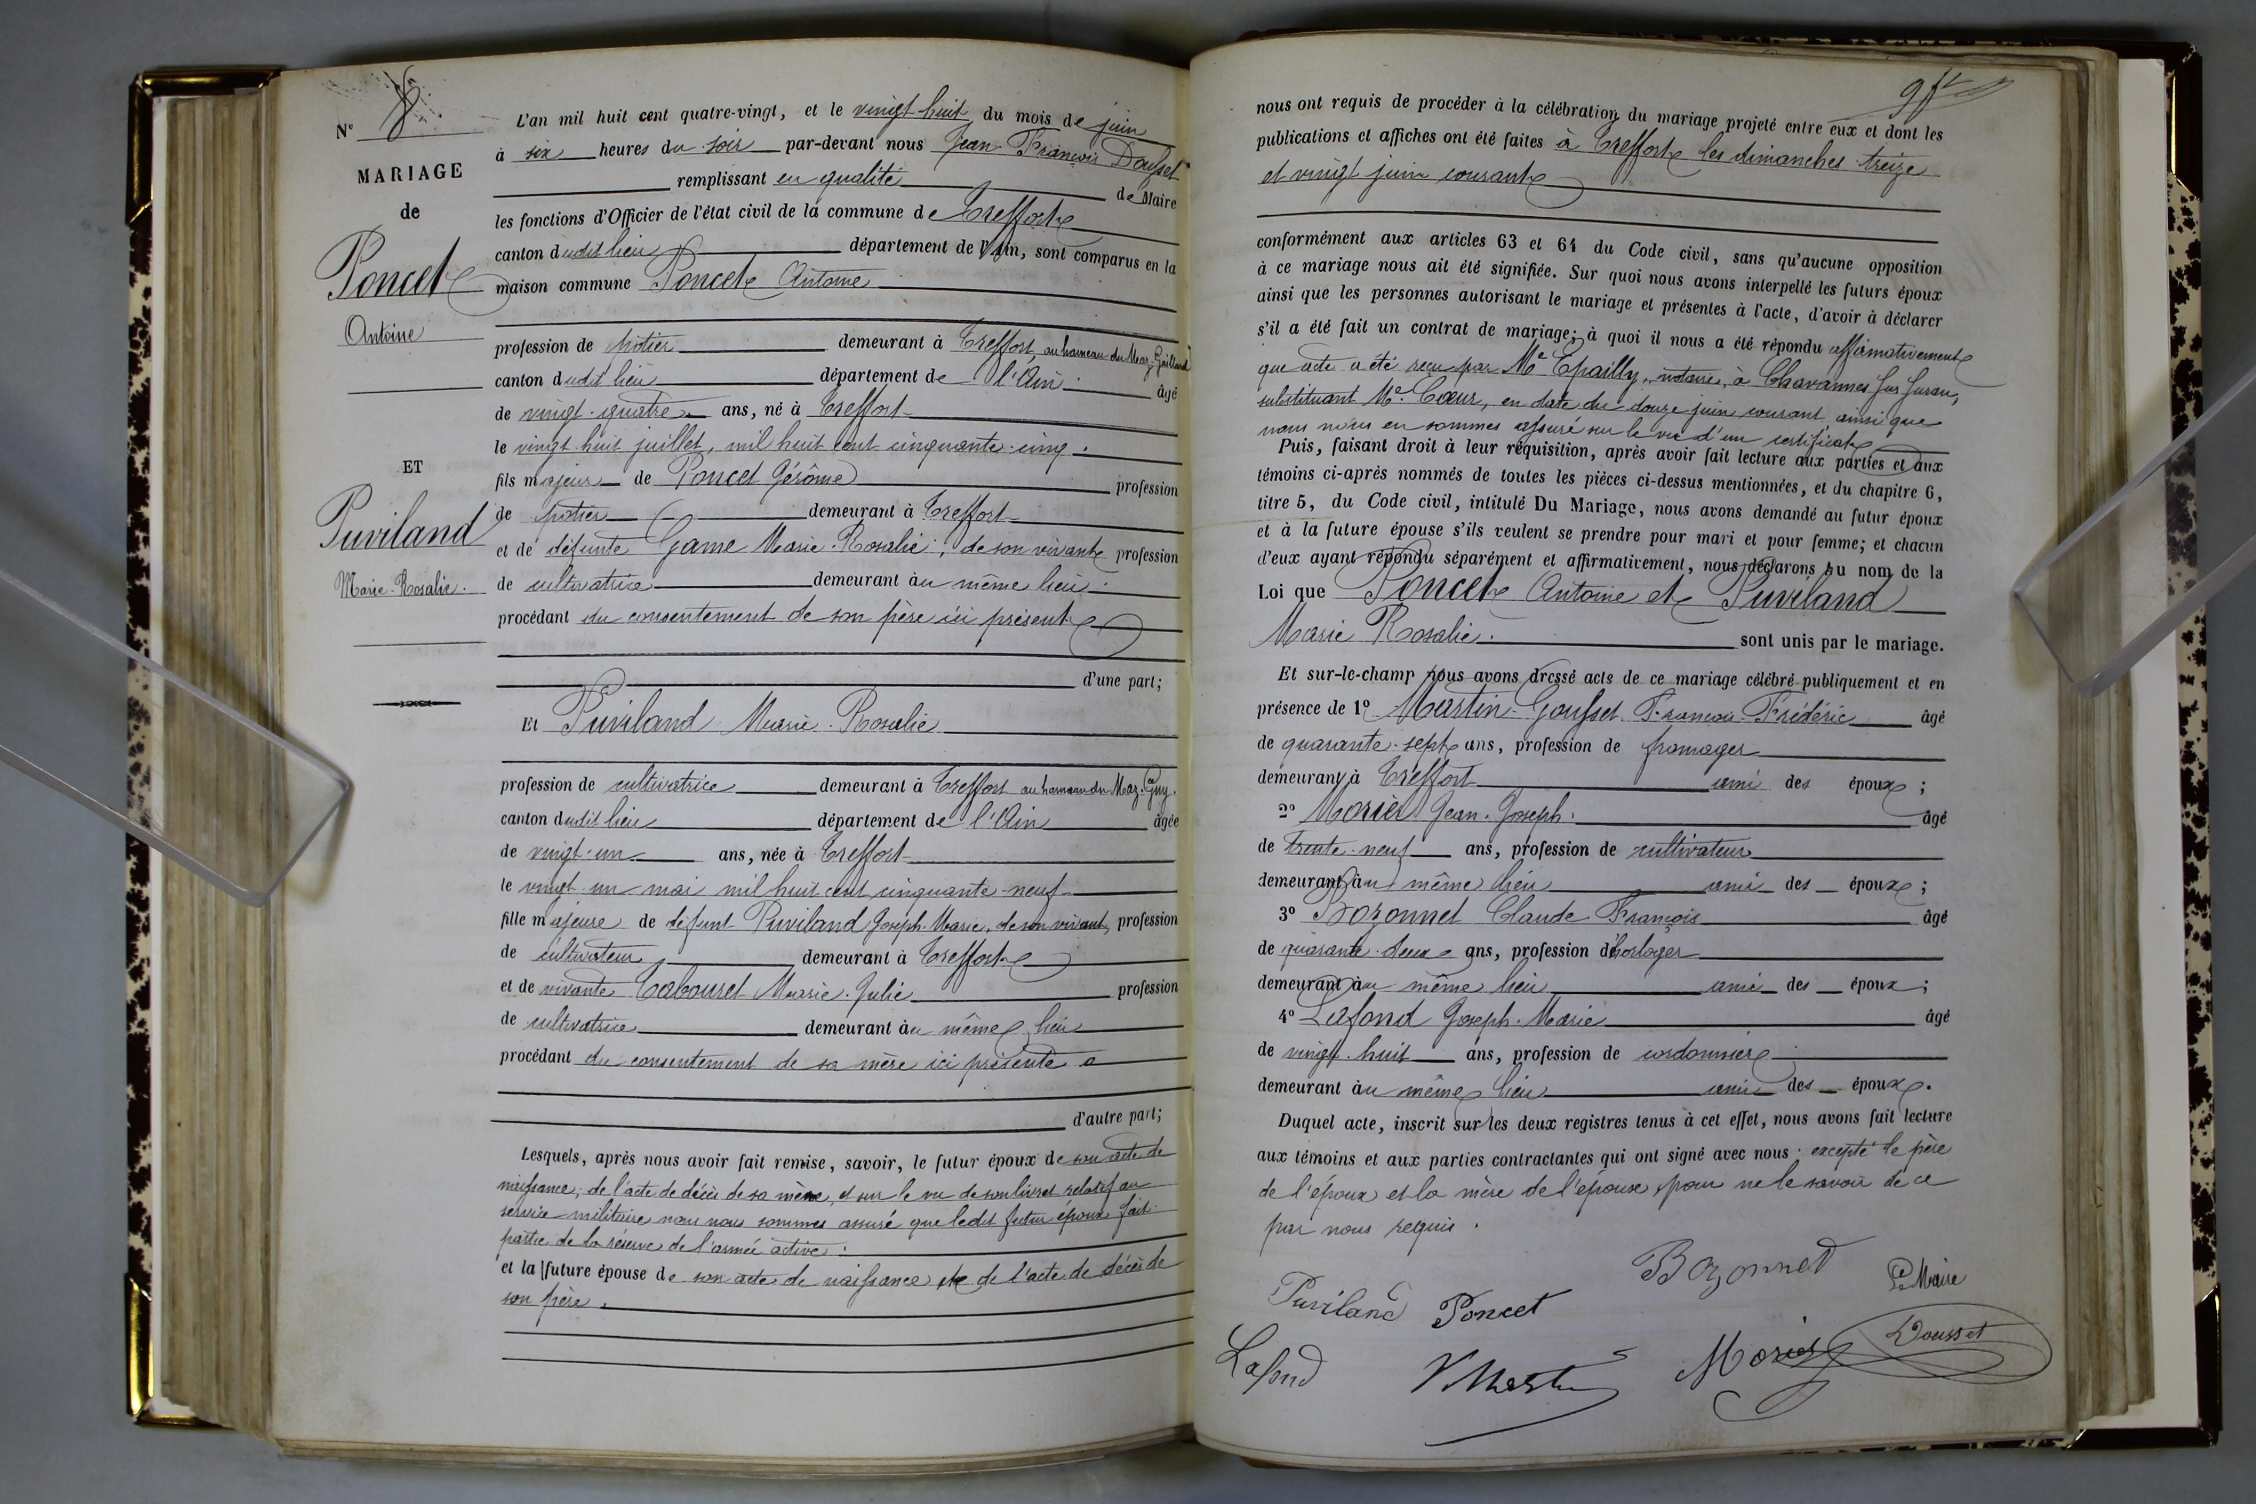 N° 8
MARIAGE
de
Poncet
Antoine
ET
Puviland
Marie-Rosalie.
L'an mil huit cent quatre-vingt, et le vingt huit du mois de juin
à six heures du soir par-devant nous Jean-François Dousset
remplissant en qualité de Maire
les fonctions d'Officier de l'état civil de la commune de Treffort
canton dudit lieu département de l'Ain, sont comparus en la
maison commune Poncet Antoine
profession de potier demeurant à Treffort au hameau du Maz-Gailland
canton dudit lieu département de l'Ain. âgé
de vingt-quatre ans, né à Treffort
le vingt huit juillet, mil huit cent cinquante-cinq.
fils majeur de Poncet Gérôme profession
de potier demeurant à Treffort
et de défunte Game Marie-Rosalie, de son vivant profession
de cultivatrice demeurant au même lieu.
procédant du consentement de son père ici présent
d'une part;
Et Puviland Marie-Rosalie
profession de cultivatrice demeurant à Treffort au hameau du Maz-Guy.
canton dudit lieu département de l'Ain âgée
de vingt-un ans, née à Treffort
le vingt-un mai mil huit cent cinquante-neuf
fille majeure de défunt Puviland Joseph-Marie, de son vivant, profession
de cultivateur demeurant à Treffort
et de vivante Tabouret Marie-Julie profession
de cultivatrice demeurant au même lieu
procédant du consentement de sa mère ici présente
d'autre part;
Lesquels, après nous avoir fait remise, savoir, le futur époux de son acte de
naissance, de l'acte de décès de sa mère, et sur le vu de son livret relatif au
service militaire nous nous sommes assuré que ledit futur époux fait
partie de la réserve de l'armée active.
et la future épouse de son acte de naissance et de l'acte de décès de
son père.
nous ont requis de procéder à la célébration du mariage projeté entre eux et dont les
publications et affiches ont été faites à Treffort les dimanches treize
et vingt juin courant
conformément aux articles 63 et 64 du Code civil, sans qu'aucune opposition
à ce mariage nous ait été signifiée. Sur quoi nous avons interpellé les futurs époux
ainsi que les personnes autorisant le mariage et présentes à l'acte, d'avoir à déclarer
s'il a été fait un contrat de mariage; à quoi il nous a été répondu affirmativement
que acte a été reçu par Me Epailly, notaire, à Chavannes sur Suran,
substituant Me Cœur, en date du douze juin courant, ainsi que
nous nous en sommes assuré sur le vu d'un certificat
Puis, faisant droit à leur réquisition, après avoir fait lecture aux parties et aux
témoins ci-après nommés de toutes les pièces ci-dessus mentionnées, et du chapitre 6,
titre 5, du Code civil, intitulé Du Mariage, nous avons demandé au futur époux
et à la future épouse s'ils veulent se prendre pour mari et pour femme; et chacun
d'eux ayant répondu séparément et affirmativement, nous déclarons au nom de la
Loi que Poncet Antoine et Puviland
Marie Rosalie. sont unis par le mariage.
Et sur-le-champ nous avons dressé acte de ce mariage célébré publiquement et en
présence de 1° Martin-Gousset François-Frédéric âgé
de quarante-sept ans, profession de fromager
demeurant à Treffort ami des époux;
2° Morier Jean-Joseph. âgé
de trente-neuf ans, profession de cultivateur
demeurant au même lieu ami des époux;
3° Bozonnet Claude François âgé
de quarante-deux ans, profession d'horloger
demeurant au même lieu ami des époux;
4° Lafond Joseph-Marie âgé
de vingt-huit ans, profession de cordonnier
demeurant au même lieu ami des époux.
Duquel acte, inscrit sur les deux registres tenus à cet effet, nous avons fait lecture
aux témoins et aux parties contractantes qui ont signé avec nous. excepté le père
de l'époux et la mère de l'épouse pour ne le savoir de ce
par nous requis.
Bozonnet
Le Maire
Puviland Poncet
Dousset
Lafond
Morier